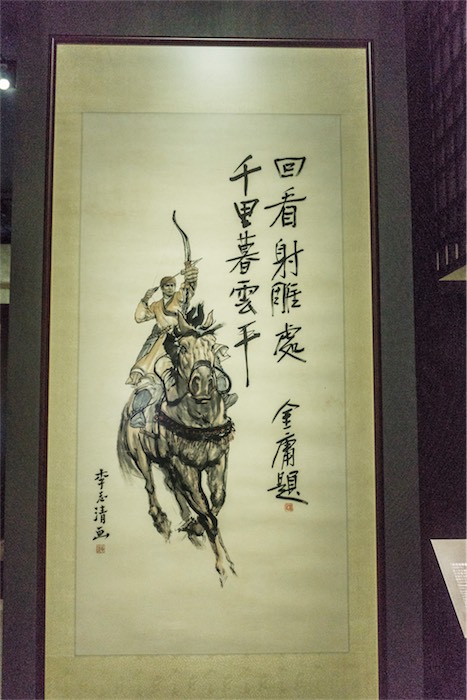 回看射雕處
千里暮雲平
金庸題
李志清画